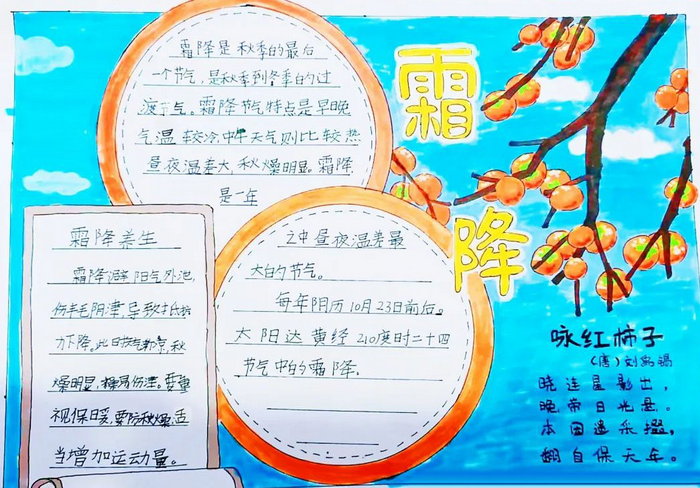 霜降
霜降是秋季的最后
一个节气，是秋季到冬季的过
渡节气。霜降节气特点是早晚
气温较冷,中午天气则比较热
昼夜温差大,秋燥明显。霜降
是一年
之中昼夜温差最
大的节气。
每年阴历10月23日前后。
太阳达黄经210度时二十四
节气中的霜降.
霜降养生
霜降 阳气外泄,
伤 阴津,导致抵抗
力下降。此日节气 秋
燥明显, 易伤津。要重
视保暖,要防秋燥,适
当增加运动量。
咏红柿子
(唐)刘禹锡
晓连星影出，
晚带日光悬。
本因遗采掇，
翻自保天年。